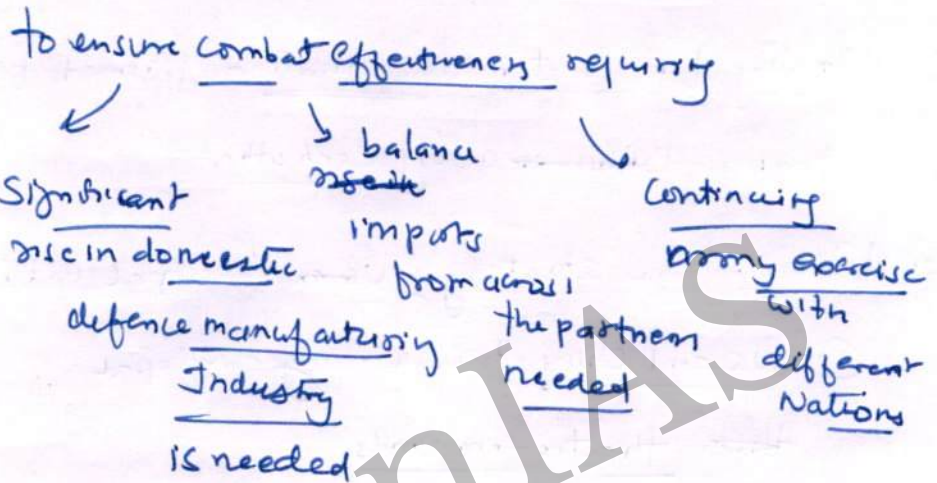 to ensure combat effectiveness requiring
Significant
rise in domestic
defence manufacturing
Industry
is needed
balance
imports
from across
the partners
needed
Continuing
army exercise
with
different
Nations
nIAS